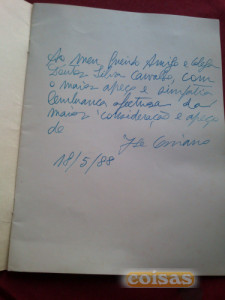 Ao Meu Querido Amigo e
Silva Carvalho, com
o maior apreço e simpatia
Lembrança afectuosa da
maior consideração e apreço
de
18/5/88
coisas